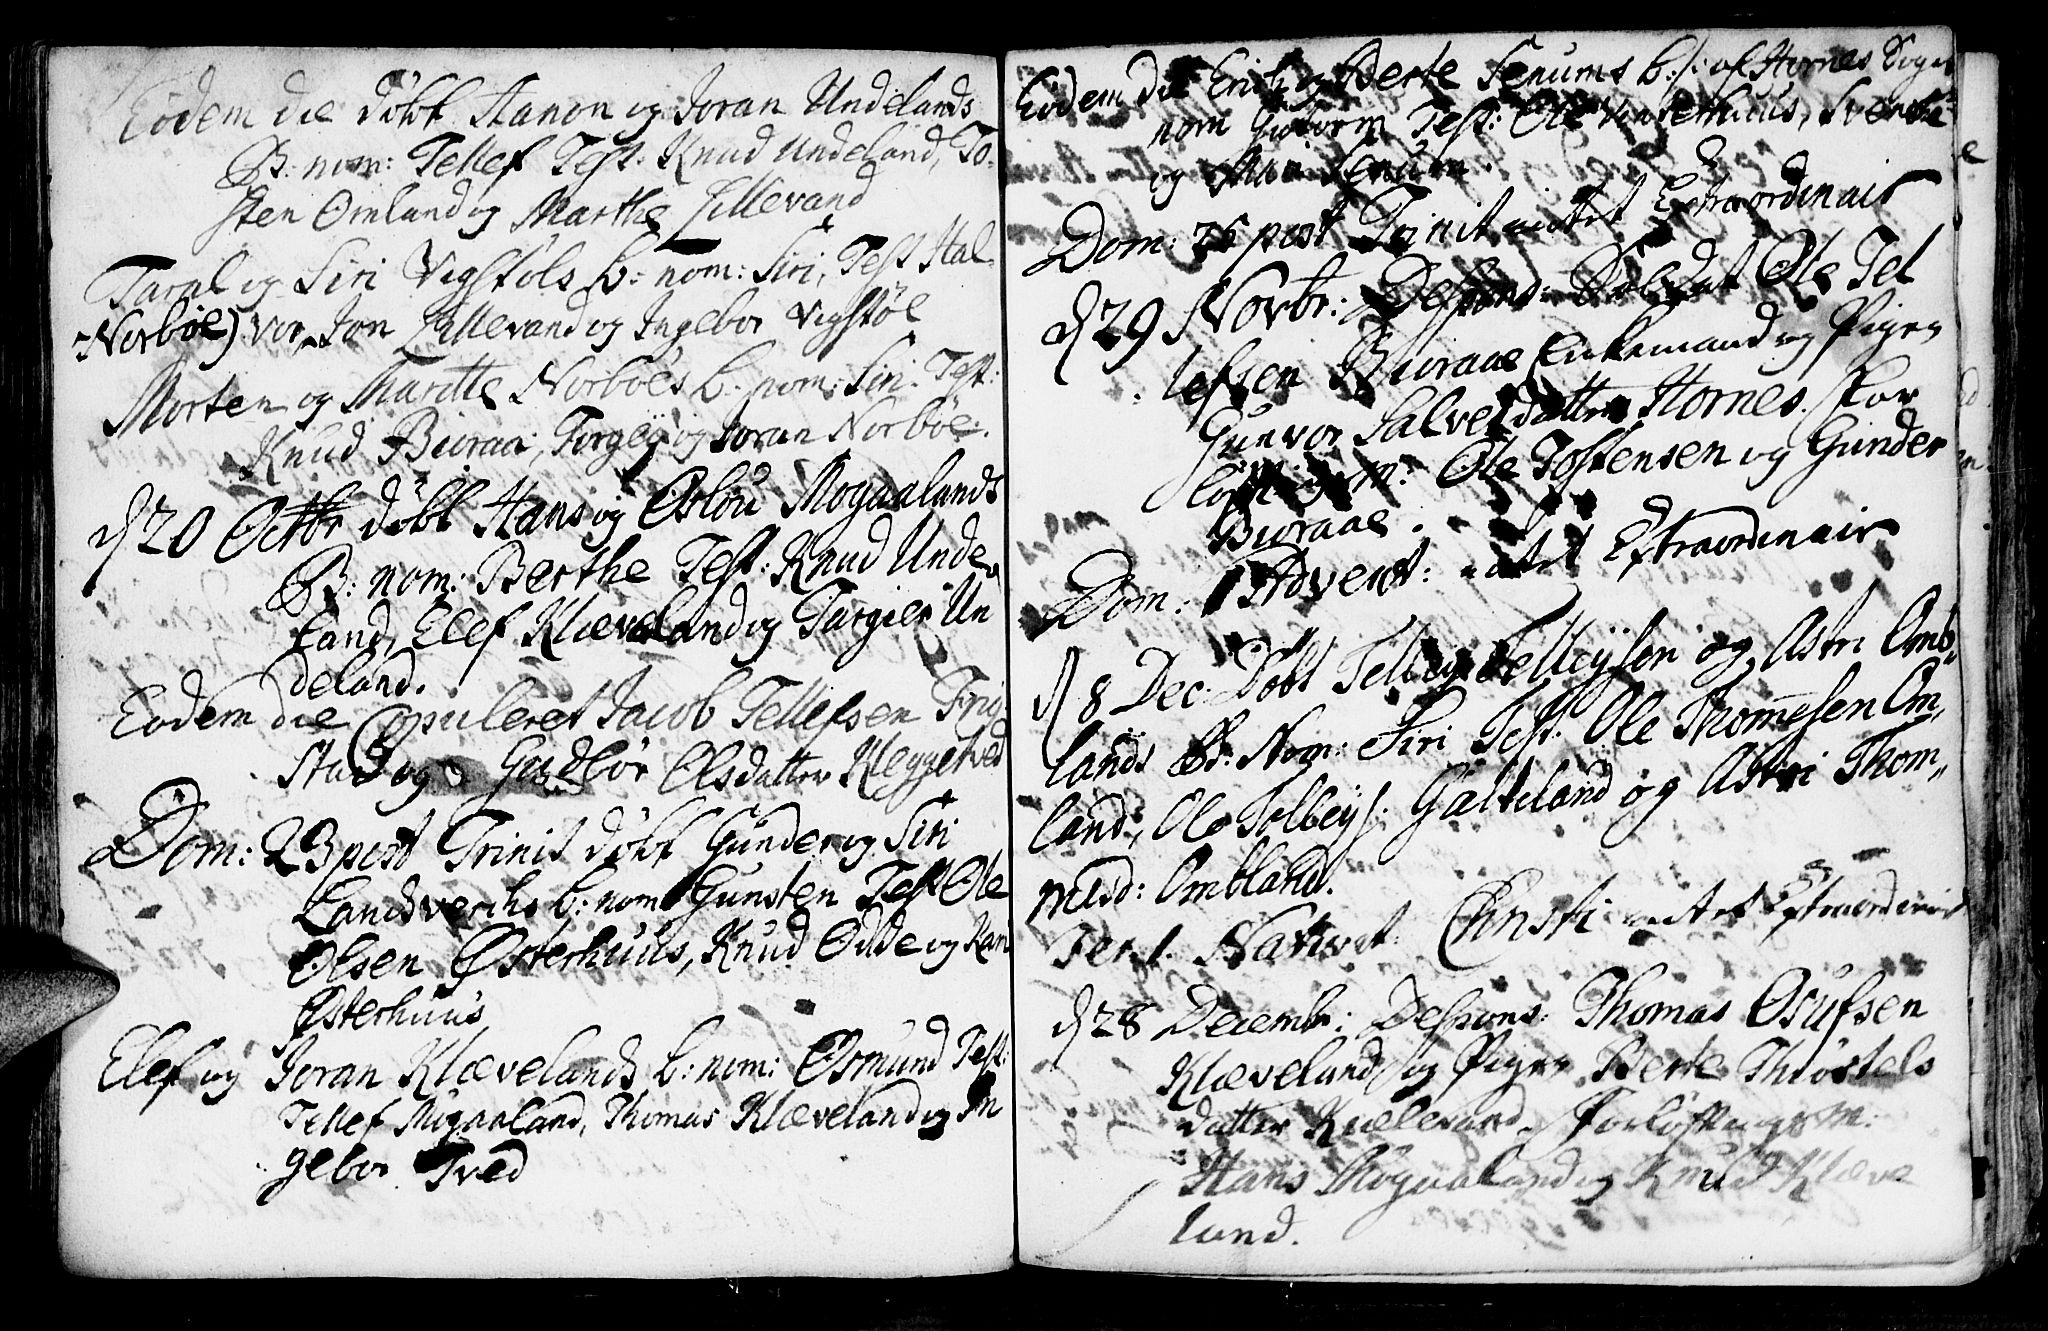 Eodem die döbt Hanon og Joran Undelands
B: nom: Tellef Test: Knud Undeland, To-
sten Omland og Marthe Hillevand
Taral og Siri Vigstöls b: nom: Siri, Test Hal-
Norböe) vor Jon Lillevand og Ingebor Vigstöl
Morten og Maritte Norböes b: nom: Siri. Test:
Knud Biuraa, Torgey og Joran Norböe.
d 20 Octbr döbt Hans og Oslou Mogaalands
B: nom: Berthe Test: Knud Unde-
land, Elef Klæveland og Targier Un
deland.
Eodem die Copuleret Jacob Tellefsen Frig-
stad og Gudlör Olsdatter Kleggetved
Dom: 23 post Trinit döbt Gunder og Siri
Landsverchs b: nom: Gunsten Test Ole
Olsen Østerhuus, Knud Odde og Kari
Østerhuus
Elef og Joran Klævelands b: nom: Osmund Test:
Tellef Migaaland, Thomas Klæveland og In
gebor Tved
Eodem die Erich og Berte Senums b: af Hornes Sogn
nom Gutorm Test: Ole Vinterhuus,
og Mari Senum.
Dom: 26 post Trinit intet Extraordinair
d 29 Novbr: Despond: Soldat Ole Tel
lefsen Biuraae Enkemand og Pigen
Gunvor Salvesdatter Hornes. For
löftnings m: Ole Tostensen og Gunder
Biuraae.
Dom: 1 Advent: intet Extraordinair
d 8 Dec: Döbt Telley Telleysen og Astri Omb-
lands B: Nom: Siri Test: Ole Thomesen Om-
land, Ole Tolleys: Galteland og Astri Thom-
Ombland.
Fer: 1. Nativit: Christi intet Extraordinair
d 28 Decembr: Despons: Thomas Osufsen
Klæveland og Pigen Berte Thiöstels
datter Kiellevand. Forlöftnings m:
Hans Mogaaland og Knud Klæve
land.